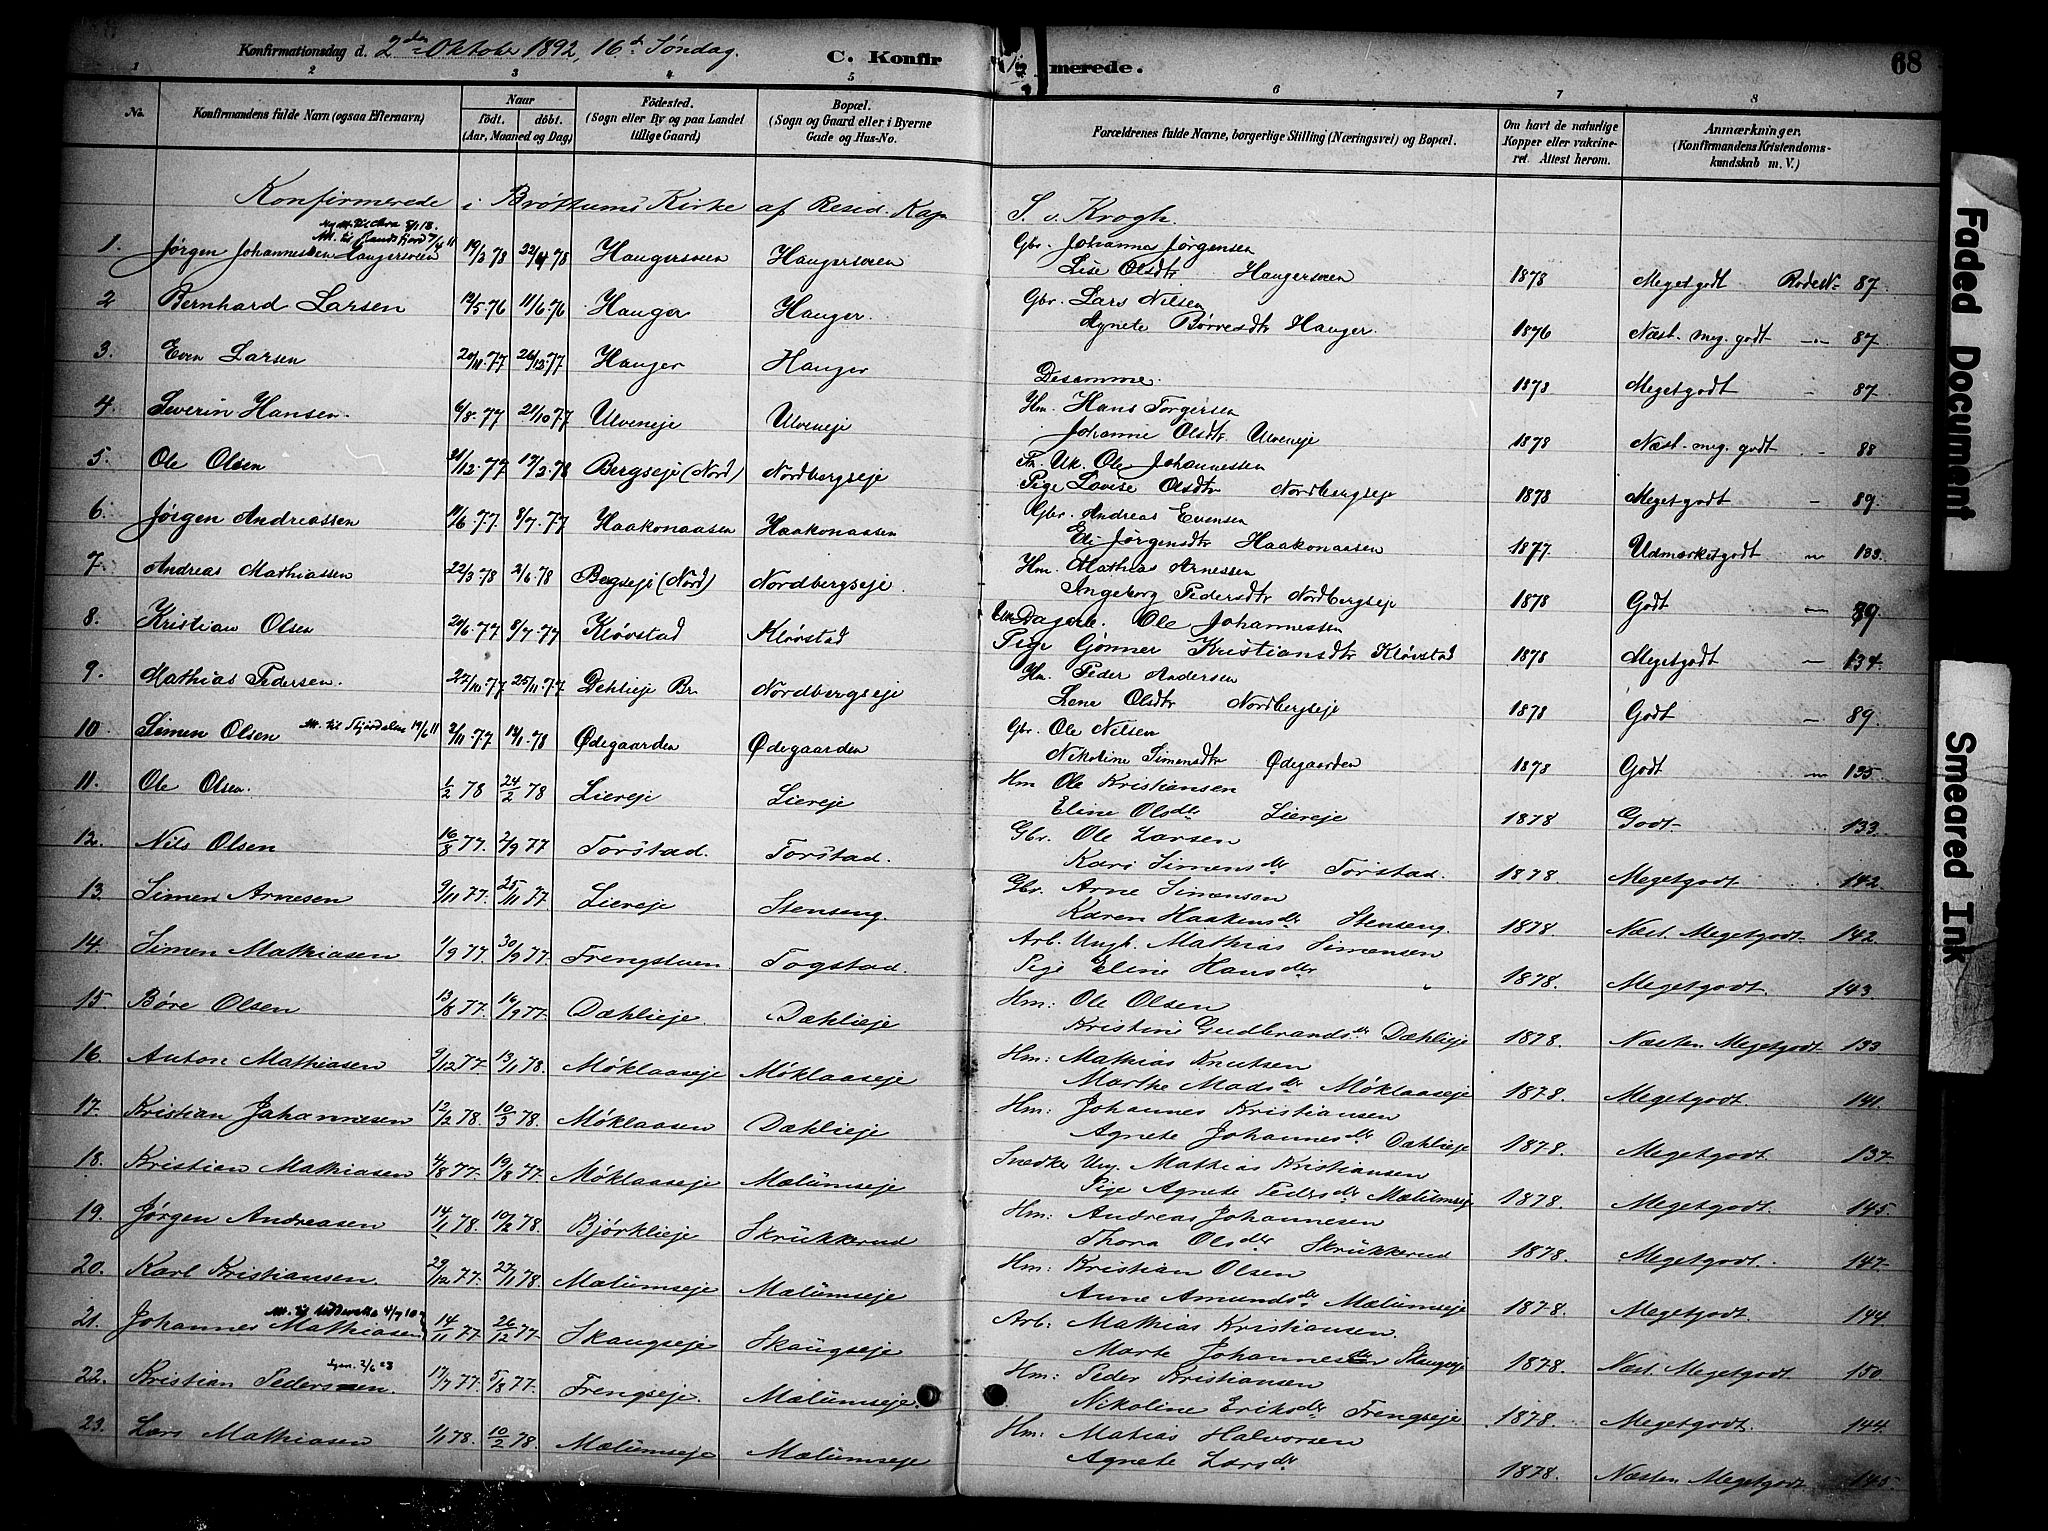 Konfirmationsdag d. 2den Oktober 1892, 16d Søndag. C. Konfirmerede. 68
1 2 3 4 5 6 7 8
No. Konfirmandens fulde Navn (ogsaa Efternavn) Naar født. døbt. (Aar, Maaned og Dag) Fødested. (Sogn eller By og paa Landet tillige Gaard) Bopæl. (Sogn og Gaard eller i Byerne Gade og Hus-No. Forældrenes fulde Navne, borgerlige Stilling (Næringsvei) og Bopæl. Om havt de naturlige Kopper eller vakcineret. Attest herom. Anmærkninger. (Konfirmandens Kristendomskundskab m. V.)
Konfirmerede i Brøttums Kirke af Resid. Kap S. v. Krogh.
1. Jørgen Johannessen Haugersveen 19/2 78 22/4 78 Haugersveen Haugersveen Gbr. Johannes Jørgensen
Lise Olsdtr Haugersveen 1878 Megetgodt RodeNo 87.
2 Bernhard Larsen 19/5 76 11/6 76 Hauger Hauger. Gbr. Lars Nilsen
Agnete Børresdtr Hauger. 1876 Næst. meg. godt -"- 87.
3. Even Larsen 20/11 77 26/12 77 Hauger Hauger Desamme. 1878 Megetgodt - 87
4. Severin Hansen. 6/8 77 21/10 77 Ulveneje Ulveneje Hm. Hans Torgersen
Johanne Olsdtr Ulveneje 1878 Næst. meg. godt - 88
5. Ole Olsen 31/12 77 17/2 78 Bergseje (Nord) Nordbergseje Fn. Uk. Ole Johannessen
Pige Lovise Olsdtr Nordbergseje 1878 Megetgodt - 89.
6. Jørgen Andreassen 11/6 77 8/7 77 Haakonaasen Haakonaasen Gbr. Andreas Evensen
Eli Jørgensdtr Haakonaasen 1877 Udmærketgodt " 133.
7. Andreas Mathiassen 22/3 78 2/6 78 Bergseje (Nord) Nordbergseje. Hm. Mathias Arnessen
Ingeborg Pedersdtr Nordbergseje 1878 Godt - 89
8. Kristian Olsen 21/6 77 8/7 77 Kløvstad Kløvstad Em Dagarb. Ole Johannessen
Pige Gønner Kristiansdtr Kløvstad 1878 Megetgodt - 134.
9. Mathias Pedersen. 22/10 77 25/11 77 Dehlieje Br. Nordbergseje Hm. Peder Andersen
Lene Olsdtr Nordbergseje 1878 Godt - 89.
10. Simen Olsen M. til Stjørdalen 19/6 11 2/11 77 14/1 78 Ødegaarden Ødegaarden Gbr. Ole Nilsen
Nikoline Simensdtr Ødegaarden 1878 Godt " 135.
11. Ole Olsen. 1/2 78 24/2 78 Liereje Liereje Hm Ole Kristiansen
Eline Olsdtr Liereje 1878 Godt. 133.
12. Nils Olsen 16/8 77. 2/9 77 Torstad. Torstad. Gbr. Ole Larsen
Kari Simensdtr Torstad. 1878. Megetgodt 142.
13. Simen Arnesen 9/11 77. 25/11 77. Liereje Stenseng. Gbr. Arne Simensen
Karen Haakensdtr Stenseng. 1878. Næst. Megetgodt. 142.
14. Simen Mathiasen 1/9 77. 30/9 77. Frengstuen Togstad. Arb. Ungk. Mathias Simensen
Pige Eline Hansdtr " 1878. Megetgodt. 143.
15. Børe Olsen 13/8 77. 16/9 77. Dæhlieje. Dæhlieje Hm: Ole Olsen
Kristine Gudbrandsdtr Dæhlieje 1878. Næsten Megetgodt. 133
16. Anton Mathiasen 9/12 77. 13/1 78. Møklaaseje Møklaaseje Hm: Mathias Knutsen
Marthe Madsdtr Møklaaseje 1878. Megetgodt 141.
17. Kristian Johannesen 12/2 78. 10/3 78. Møklaasen Dæhlieje Hm: Johannes Kristiansen
Agnete Johannesdtr Dæhlieje 1878. Megetgodt. 137.
18. Kristian Mathiasen 4/8 77. 19/8 77. Møklaaseje Mælumseje Snedker Ung. Mathias Kristiansen
Pige Agnete Pedersdtr Mælumseje 1878. Megetgodt. 145.
19. Jørgen Andreasen 14/1 78. 10/2 78. Bjørklieje Skrukkerud Hm: Andreas Johannesen
Thora Olsdtr Skrukkerud 1878. Megetgodt. 147.
20. Karl Kristiansen 29/12 77. 27/1 78. Mælumseje Mælumseje Hm: Kristian Olsen
Anne Amundsdtr Mælumseje 1878. Megetgodt. 144.
21. Johannes Mathiasen M. til Uddevalla 4/7 10 14/11 77. 26/12 77. Skaugseje Skaugseje Arb: Mathias Kristiansen.
Marte Johannesdtr Skaugseje 1878. Næst Megetgodt. 150.
22. Kristian Pedersen. 2/6 23 17/7 77. 5/8 77. Frengseje. Mælumseje. Hm: Peder Kristiansen
Nikoline Eriksdtr Frengseje 1878. Megetgodt. 144.
23. Lars Mathiasen 1/1 78. 10/2 78. Mælumseje Mælumseje Hm: Matias Halvorsen
Agnete Larsdtr 1878. Næsten Megetgodt 145.
Faded Document
Smeared Ink